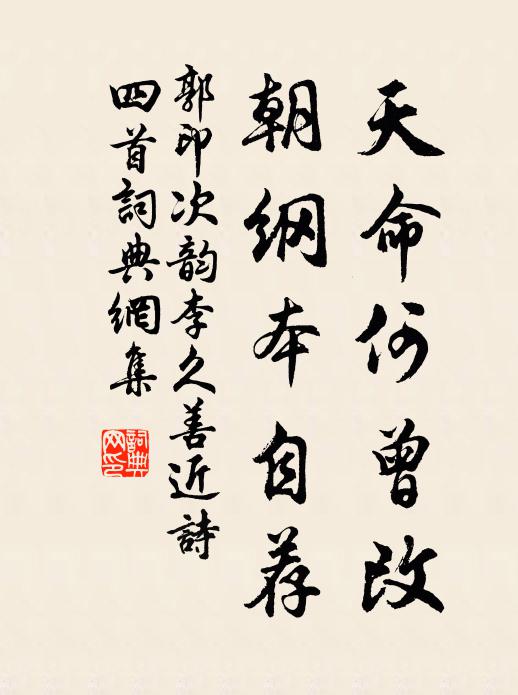 天命何曾改
朝纲本自荐
郭印次韵李久善近詩
四首詞典網集
詞典
网印